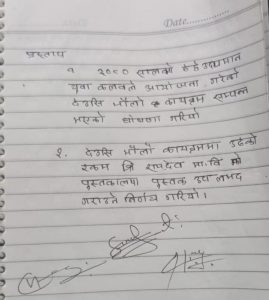 Date..............
प्रस्ताव
१ २०८० सालको उदयमान
युवा क्लवले आयोजना गरेको
देउसि भैलो कार्यक्रम सम्पन्न
भएको घोषणा गरियो
२. देउसि भैलो कार्यक्रममा उठेको
रकम मा.वि को
पुस्तकालयमा पुस्तक उपलब्ध
गराउने निर्णय गरियो।